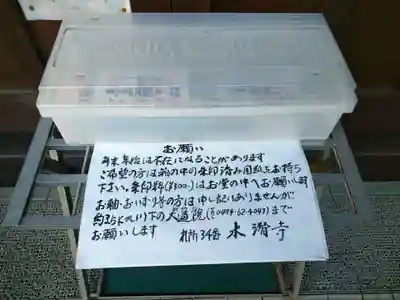 お願い
年末年始は不在になることがあります
ご希望の方は箱の中の朱印済み用紙をお持ち
下さい。朱印料(¥300-)はお堂の中へお願い
お軸・おいずる等の方は申し訳ありませんが
約3.5km川下の大通院(☎0494-62-4049)まで
お願いします 札所34番 水潜寺